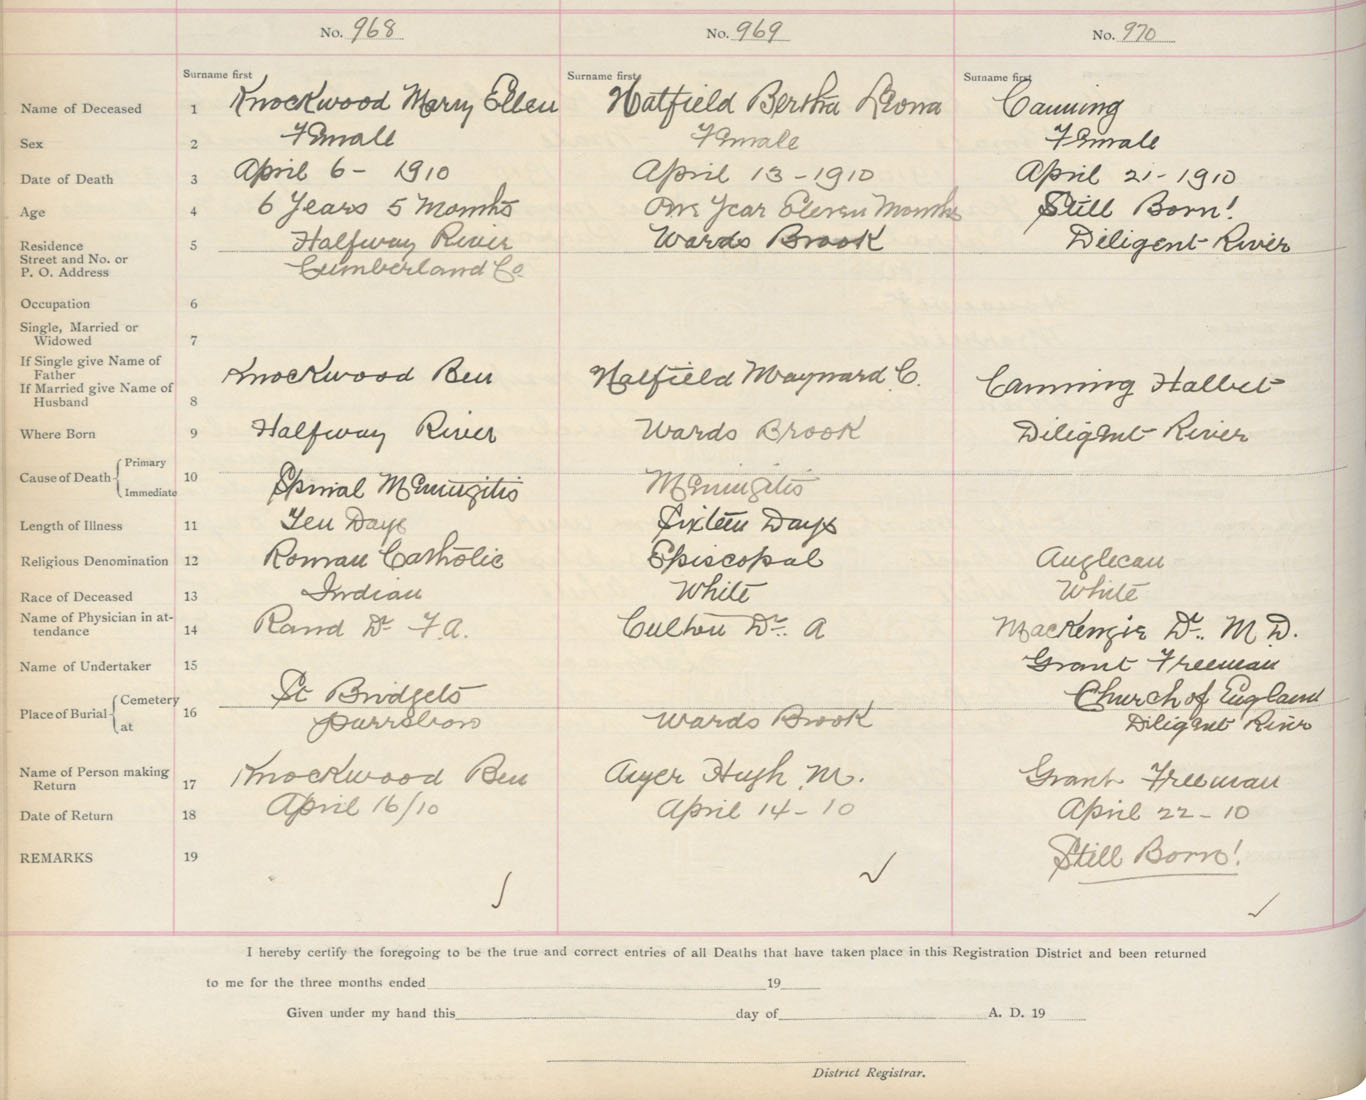 No. 968 No. 969 No. 970
Surname first Surname first Surname first
Name of Deceased 1 Knockwood Mary Ellen Hatfield Bertha Leona Canning
Sex 2 Female Female Female
Date of Death 3 April 6 - 1910 April 13 - 1910 April 21 - 1910
Age 4 6 Years 5 Months One Year Eleven Months Still Born!
Residence 5 Halfway River Wards Brook Diligent River
Street and No. or
P. O. Address Cumberland Co
Occupation 6
Single, Married or
Widowed 7
If Single give Name of
Father Knockwood Ben Hatfield Maynard C. Canning Halbet
If Married give Name of
Husband 8
Where Born 9 Halfway River Wards Brook Diligent River
Cause of Death { Primary
10 Spinal Meningitis Meningitis
Immediate
Length of Illness 11 Ten Days Sixteen Days
Religious Denomination 12 Roman Catholic Episcopal Anglican
Race of Deceased 13 Indian White White
Name of Physician in at-
tendance 14 Rand Dr F.A. Dr. A MacKenzie Dr. M. D.
Name of Undertaker 15 Grant Freeman
Place of Burial { Cemetery 16 St Bridgets Church of England
at Parrsboro Wards Brook Diligent River
Name of Person making
Return 17 Knockwood Ben Ayer Hugh M. Grant Freeman
Date of Return 18 April 16/10 April 14 - 10 April 22 - 10
REMARKS 19 Still Born!
I hereby certify the foregoing to be the true and correct entries of all Deaths that have taken place in this Registration District and been returned
to me for the three months ended 19
Given under my hand this day of A. D. 19
District Registrar.